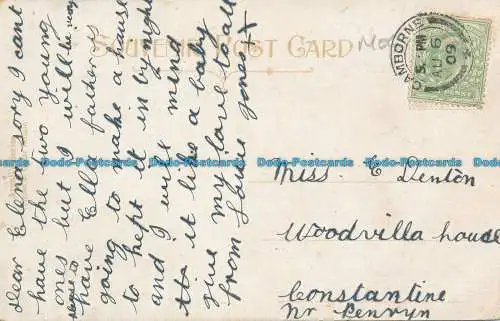 SOUVENIR POST CARD
CAMBORNE
5 PM
AU 6
09
Dear Elena sorry I cant
have the two young
ones but I will be very
please to
have Ella father
going to make a house
to kept it in by night
and I will mind
it like a baby
give my love to all
from Louie Jones X
Miss E Denton
Woodvilla house
Constantine
Nr Penryn
Dodo-Postcards Dodo-Postcards Dodo-Postcards Dodo-Postcards